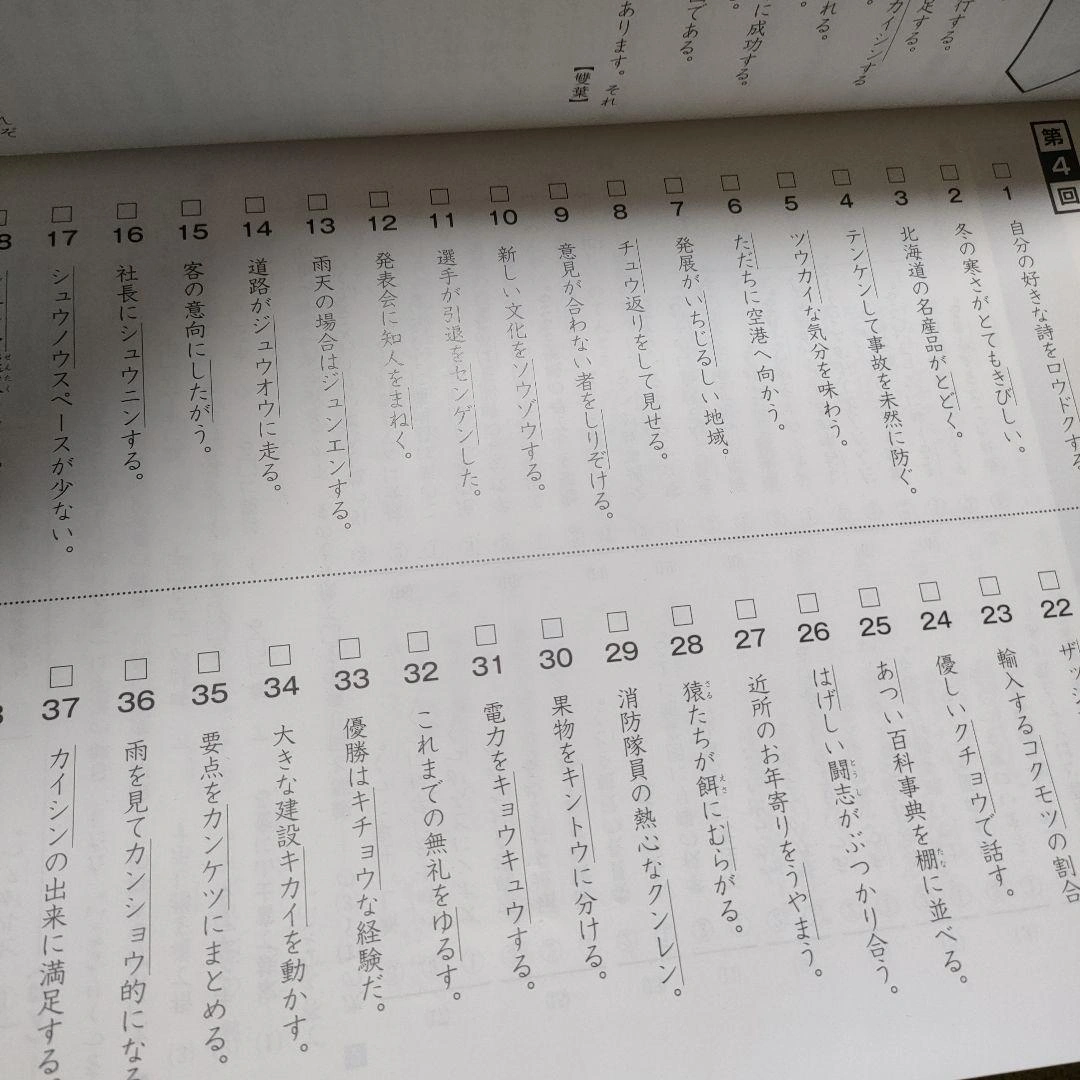 行する。
足する。
カイシンする
れる。
に成功する。
である。
あります。それ
【雙葉】
第4回
1 自分の好きな詩をロウドクする
2 冬の寒さがとてもきびしい。
3 北海道の名産品がとどく。
4 テンケンして事故を未然に防ぐ。
5 ツウカイな気分を味わう。
6 ただちに空港へ向かう。
7 発展がいちじるしい地域。
8 チュウ返りをして見せる。
9 意見が合わない者をしりぞける。
10 新しい文化をソウゾウする。
11 選手が引退をセンゲンした。
12 発表会に知人をまねく。
13 雨天の場合はジュンエンする。
14 道路がジュウオウに走る。
15 客の意向にしたがう。
16 社長にシュウニンする。
17 シュウノウスペースが少ない。
22 ザッシ
23 輸入するコクモツの割合
24 優しいクチョウで話す。
25 あつい百科事典を棚に並べる。
26 はげしい闘志がぶつかり合う。
27 近所のお年寄りをうやまう。
28 猿たちが餌にむらがる。
29 消防隊員の熱心なクンレン。
30 果物をキントウに分ける。
31 電力をキョウキュウする。
32 これまでの無礼をゆるす。
33 優勝はキチョウな経験だ。
34 大きな建設キカイを動かす。
35 要点をカンケツにまとめる。
36 雨を見てカンショウ的になる
37 カイシンの出来に満足する。